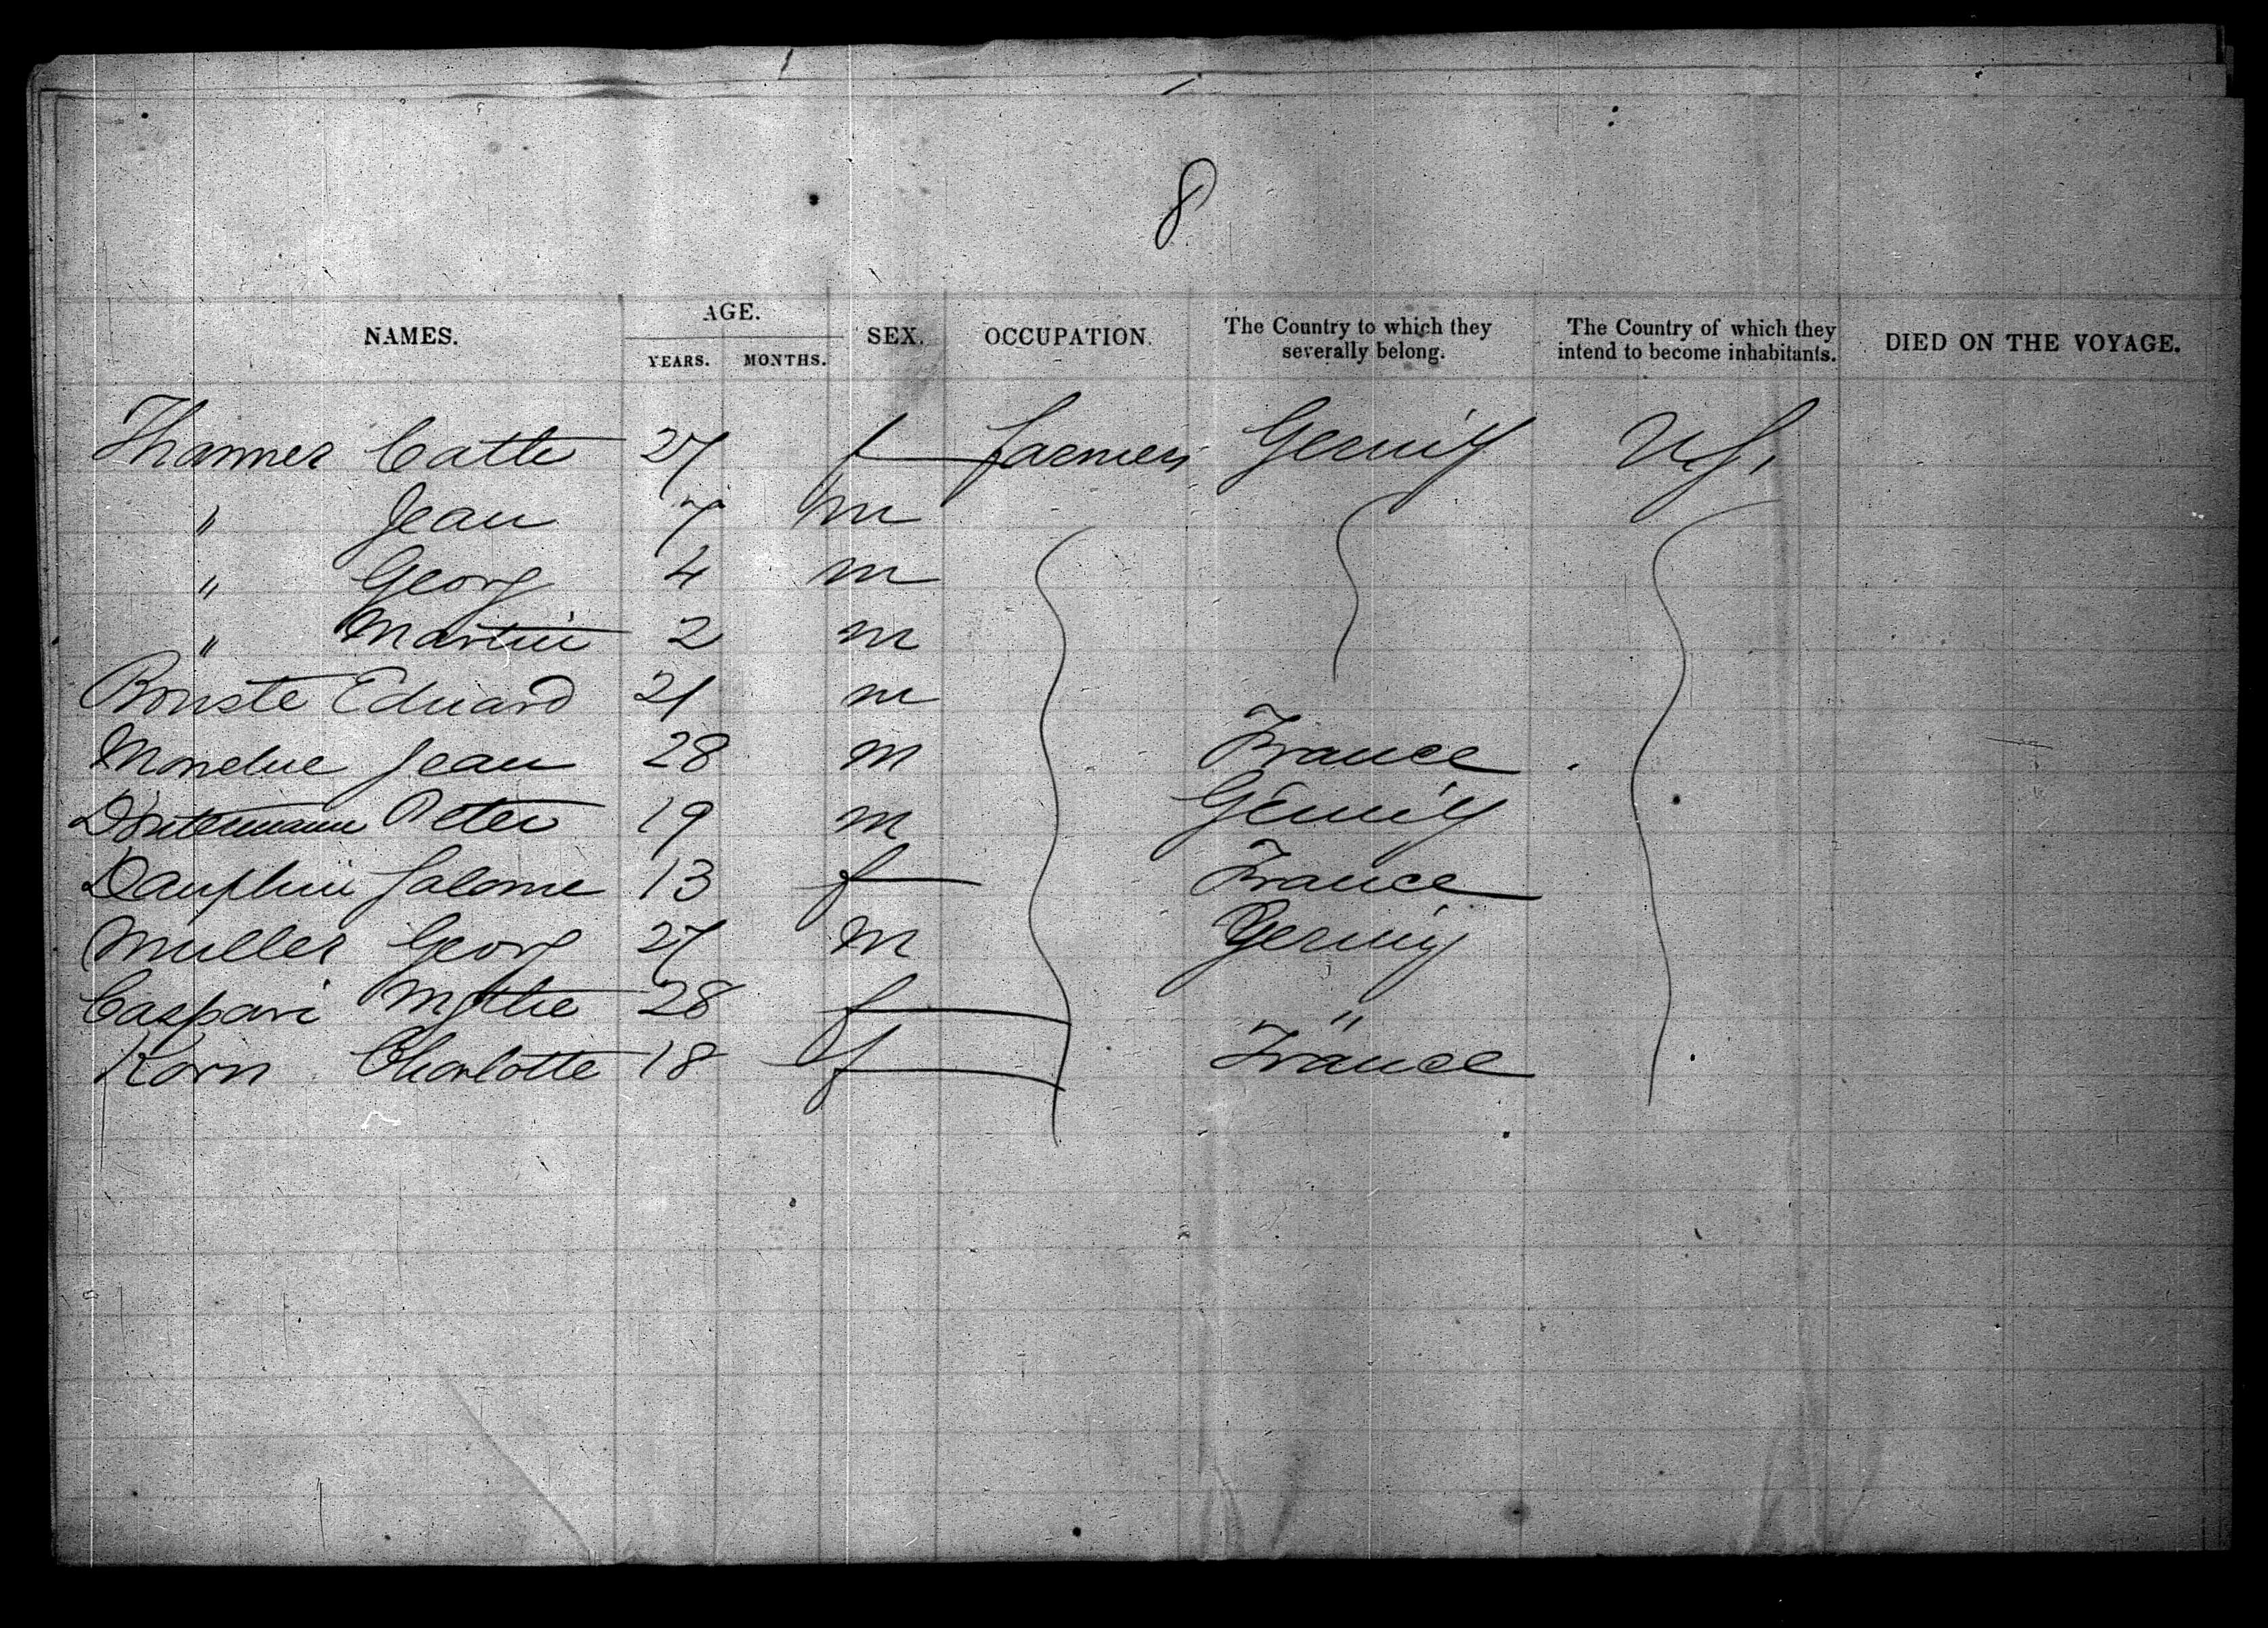 8
NAMES. AGE. YEARS. MONTHS. SEX. OCCUPATION. The Country to which they severally belong. The Country of which they intend to become inhabitants. DIED ON THE VOYAGE.
Thanner Cath 27 f farmers Germy U.S.
" Jean 7 m
" Georg 4 m
" Martin 2 m
Eduard 21 m
Jean 28 m France
Peter 19 m Germy
Dauphin Salome 13 f France
Muller Georg 27 m Germy
Caspari 28 f "
Korn Charlotte 18 f France